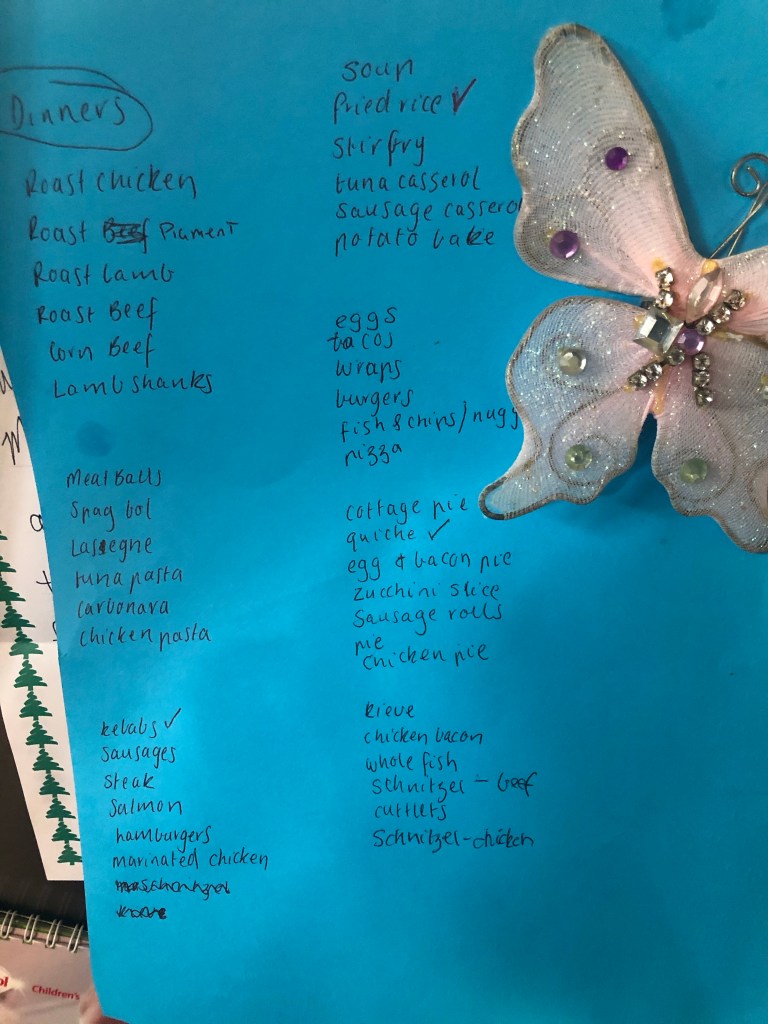 Dinners
Roast chicken
Roast Piament
Roast Lamb
Roast Beef
Corn Beef
Lamb shanks
Meat Balls
Spag bol
Lasegne
tuna pasta
carbonara
chicken pasta
kebabs ✓
Sausages
Steak
Salmon
hamburgers
marinated chicken
soup
Fried rice ✓
Stir fry
tuna casserol
sausage cassero
potato bake
eggs
tacos
wraps
burgers
fish & chips / nugg
pizza
cottage pie
quiche ✓
egg & bacon pie
zucchini slice
Sausage rolls
pie
chicken pie
kieve
chicken bacon
whole fish
Schnitzel - beef
cuttlets
Schnitzel - chicken
Children's